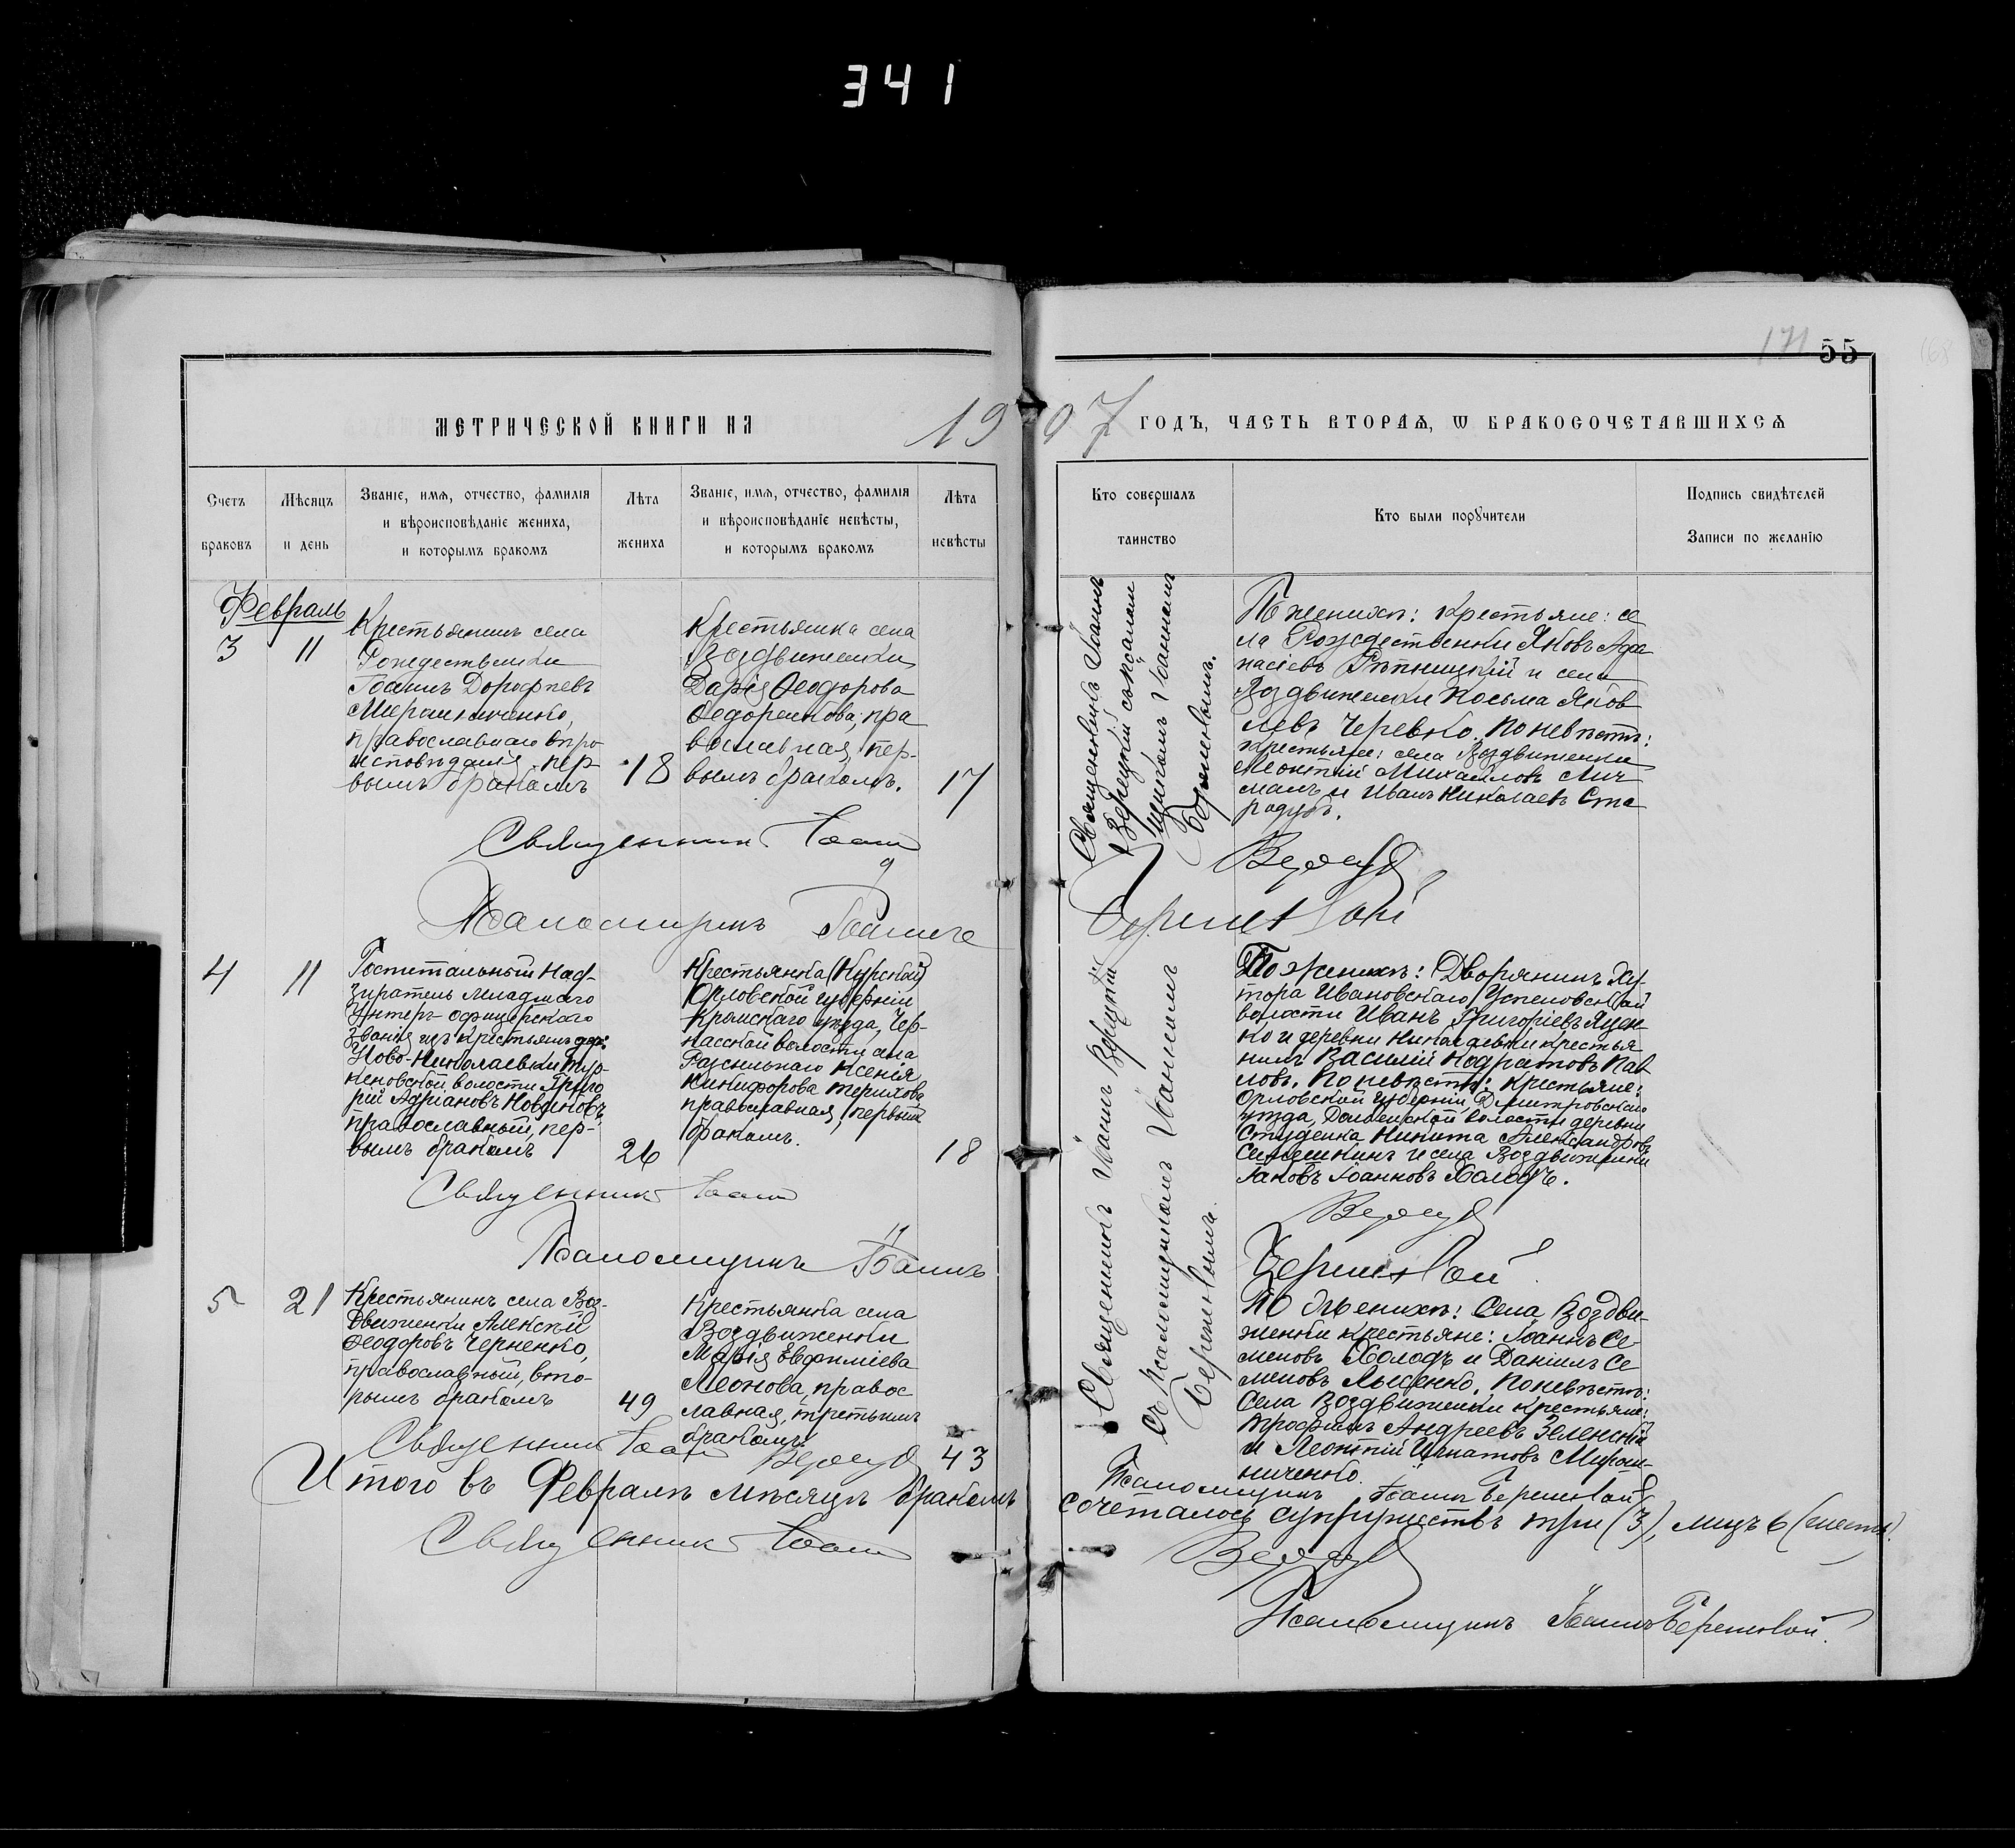 341
171 55
МЕТРИЧЕСКОЙ КНИГИ НА 1907 ГОДЪ, ЧАСТЬ ВТОРАЯ, Ѡ БРАКОСОЧЕТАВШИХСЯ
Счетъ
браковъ
Мѣсяцъ
и день
Званіе, имя, отчество, фамилія
и вѣроисповѣданіе жениха,
и которымъ бракомъ
Лѣта
жениха
Званіе, имя, отчество, фамилія
и вѣроисповѣданіе невѣсты,
и которымъ бракомъ
Лѣта
невѣсты
Кто совершалъ
таинство
Кто были порꙋчители
Подпись свидѣтелей
Записи по желанію
Февраль
3
11
Крестьянинъ села
Рождественки
Іоаннъ Дорофеевъ
Мирошниченко,
православнаго вѣро
исповѣданія, пер-
вымъ бракомъ
18
Крестьянка села
Воздвиженки
Дарія Ѳеодорова
Ѳедоренкова, пра
вославная, пер-
вымъ бракомъ.
17
Священникъ Іоаннъ
Верецкій съ псалом
щикомъ Іоанномъ
Береновымъ.
По женихѣ: крестьяне: се
ла Рождественки Яковъ Афа
насіевъ Рѣпницкій и села
Воздвиженки Косьма Яков
левъ Черевко. По невѣстѣ:
крестьяне: села Воздвиженки
Леонтій Михайловъ Лич
манъ и Иванъ Николаевъ Ста
родубъ.
Священник Іоанн
Псаломщикъ Іоаннъ
4
11
Госпитальный над-
зиратель младшаго
унтеръ-офицерскаго
званія изъ крестьянъ дер:
Ново-Николаевки Тур-
кеновской волости Григо
рій Адріановъ Новиковъ,
православный, пер-
вымъ бракомъ
26
Крестьянка (Курской)
Орловской губерніи
Кромскаго уѣзда, Чер-
касской волости села
Ксенія
Никифорова Терихова,
православная, первымъ
бракомъ.
18
Священникъ Іоаннъ Верецкій
съ псаломщикомъ Іоанномъ
Береновымъ.
По женихѣ: Дворянинъ Ху-
тора Ивановскаго Успеновской
волости Иванъ Григоріевъ Яцен-
ко и деревни Николаевки крестья
нинъ Василій Кодратовъ Пав
ловъ. По невѣстѣ: крестьяне:
Орловской губерніи, Дмитровскаго
уѣзда, волости деревни
Студенка Никита Александровъ
и села Воздвиженки
Іаковъ Іоанновъ Холодъ.
Священник Іоанн
Псаломщикъ Іоаннъ
5
21
Крестьянинъ села Воз-
движенки Алексѣй
Ѳеодоровъ Черненко,
православный, вто-
рымъ бракомъ
49
Крестьянка села
Воздвиженки
Марія Евфиміева
Леонова, правос
лавная, третьимъ
бракомъ.
43
По женихѣ: Села Воздви-
женки крестьяне: Іоаннъ Се-
меновъ Холодъ и Даніилъ Се
меновъ Лысенко. По невѣстѣ:
Села Воздвиженки крестьяне:
Трофимъ Андреевъ Зеленскій
и Леонтій Игнатовъ Мирош-
ниченко.
Священник Іоанн
Псаломщикъ Іоаннъ
Итого въ Февралѣ мѣсяцѣ бракомъ
сочеталось супружествъ три (3), лицъ 6 (шесть).
Священник Іоанн
Псаломщикъ Іоаннъ